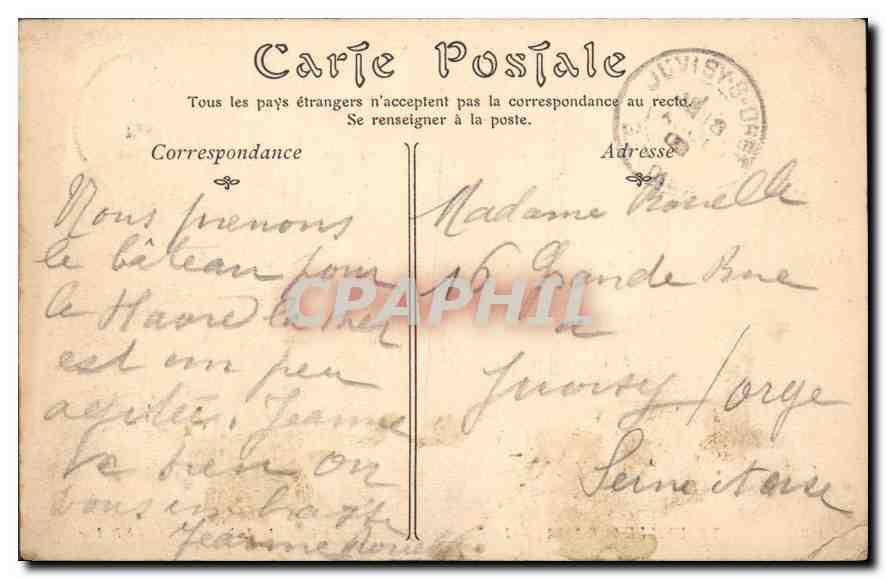 Carte Postale
Tous les pays étrangers n'acceptent pas la correspondance au recto.
Se renseigner à la poste.
Correspondance
Nous prenons
le bâteau pour
le Havre la mer
est un peu
agitée. Jeanne
va bien On
vous embrasse
Jeanne Rouelle
Adresse
Madame Rouelle
16 Grande Rue
à
Juvisy s/orge
Seine et oise
JUVISY-S-ORGE
CPAPHIL